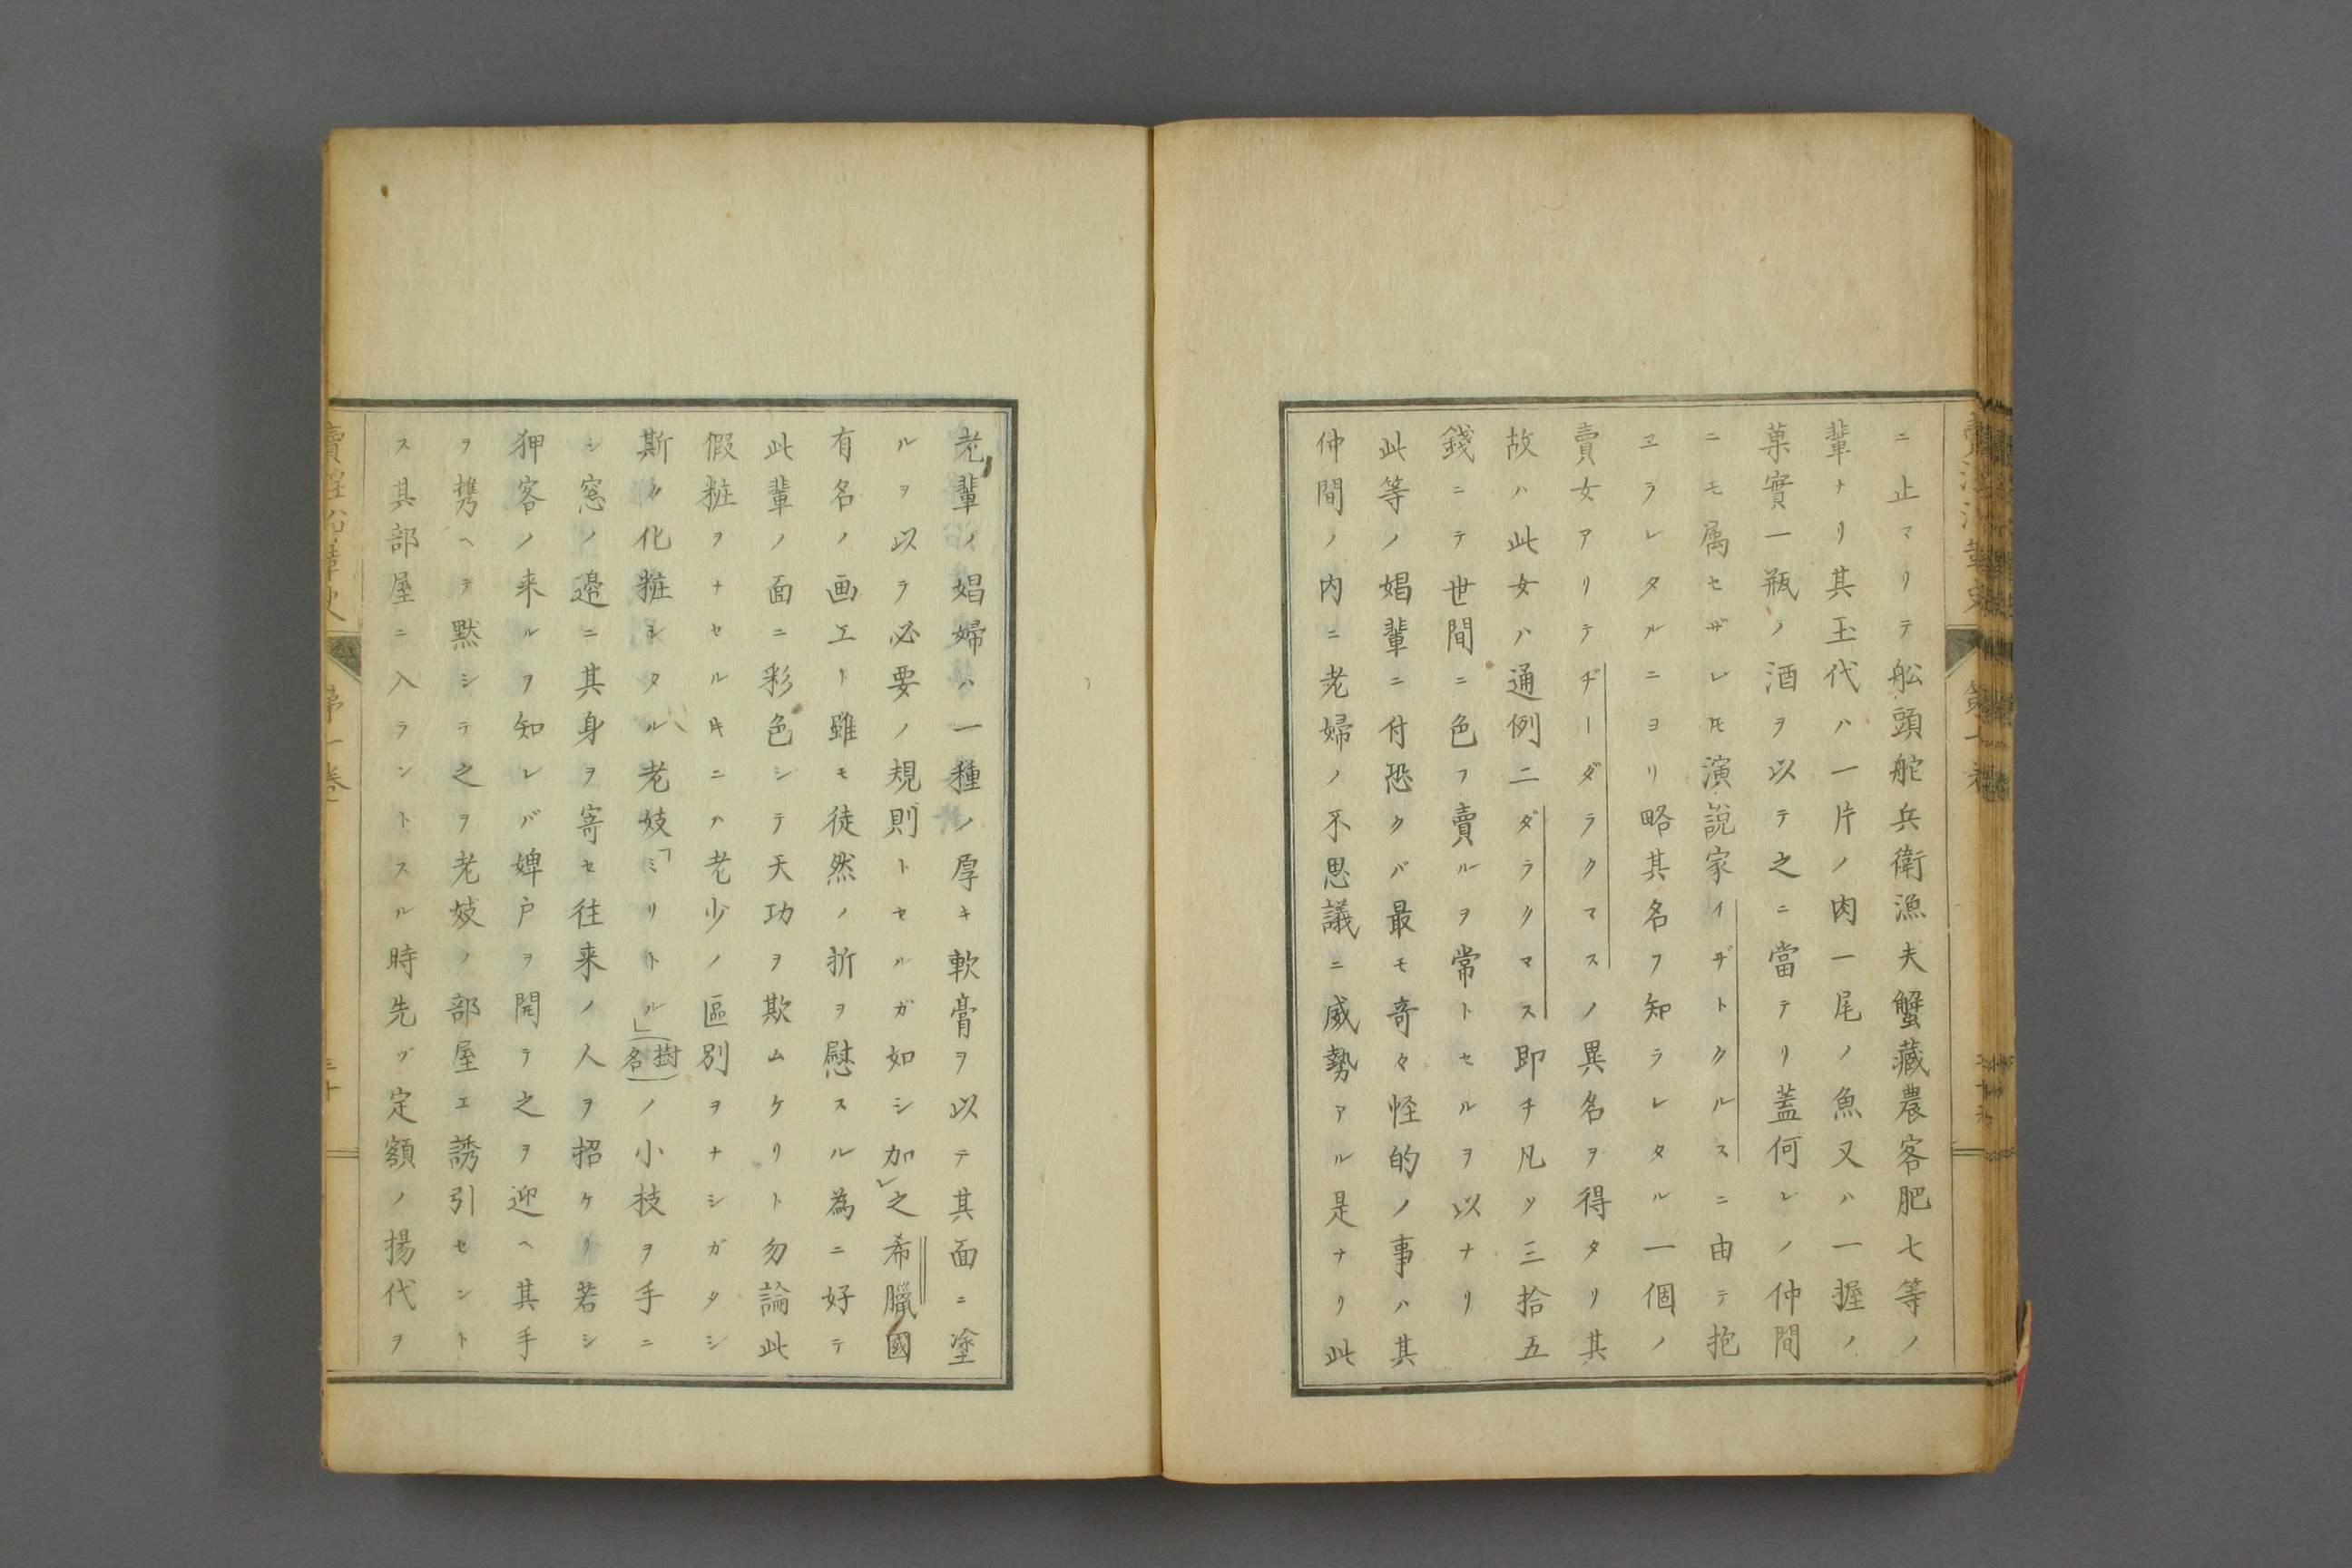 ニ止マリテ舩頭舵兵衛漁夫蟹藏農客肥七等ノ
輩ナリ其玉代ハ一片ノ肉一尾ノ魚又ハ一握ノ
菓實一瓶ノ酒ヲ以テ之ニ當テリ蓋何レノ仲間
ニモ属セザレ𪜈演説家イヂトクルスニ由テ抱
ヱラレタルニヨリ略其名ヲ知ラレタル一個ノ
賣女アリテヂーダラクマスノ異名ヲ得タリ其
故ハ此女ハ通例二ダラクマス即チ凡ソ三拾五
錢ニテ世間ニ色ヲ賣ルヲ常トセルヲ以ナリ
此等ノ娼輩ニ付恐クバ最モ奇々怪的ノ事ハ其
仲間ノ内ニ老婦ノ不思議ニ威勢アル是ナリ此
老輩ノ娼婦ハ一種ノ厚キ軟膏ヲ以テ其面ニ塗
ルヲ以テ必要ノ規則トセルガ如シ加之希臘國
有名ノ画工ト雖モ徒然ノ折ヲ慰スル為ニ好テ
此輩ノ面ニ彩色シテ天功ヲ欺ムケリト勿論此
假粧ヲナセル𪜈ニハ老少ノ區別ヲナシガタシ
斯ク化粧シタル老妓「ミリトル」(樹名)ノ小技ヲ手ニ
シ窓ノ邉ニ其身ヲ寄セ往来ノ人ヲ招ケリ若シ
狎客ノ来ルヲ知レバ婢戸ヲ開テ之ヲ迎ヘ其手
ヲ携ヘテ黙シテ之ヲ老妓ノ部屋エ誘引セント
ス其部屋ニ入ラントスル時先ヅ定額ノ揚代ヲ